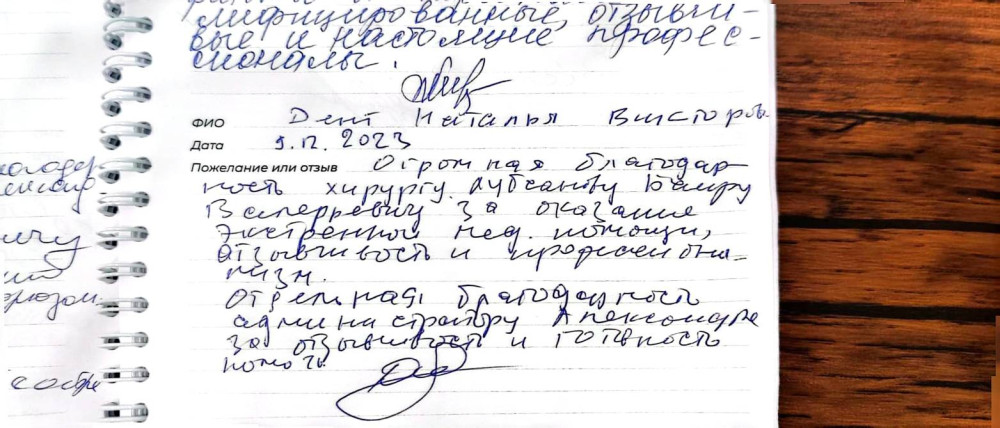 лифицированные, отзывчи-
вые и настоящие профес-
сионалы.
ФИО Дент Наталья Викторовн
Дата 9.12.2023
Пожелание или отзыв Огромная благодар
ность хирургу Лубсанову Баиру
Валерьевичу за оказание
экстренной мед. помощи,
отзывчивость и профессиона-
лизм.
Отдельная благодарность
администратору Александре
за отзывчивость и готовность
помочь